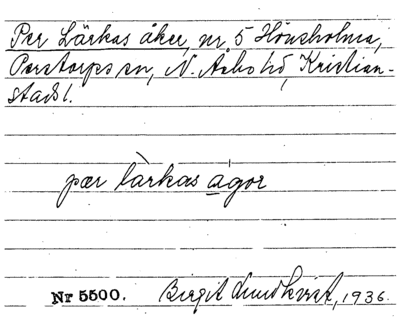 Per Lärkas åker, nr. 5 Hönsholma,
Perstorps sn, N. Åsbo hd, Kristian-
stads l.
pær làrkas agor
Nr 5500. Birgit Lundkvist, 1936.